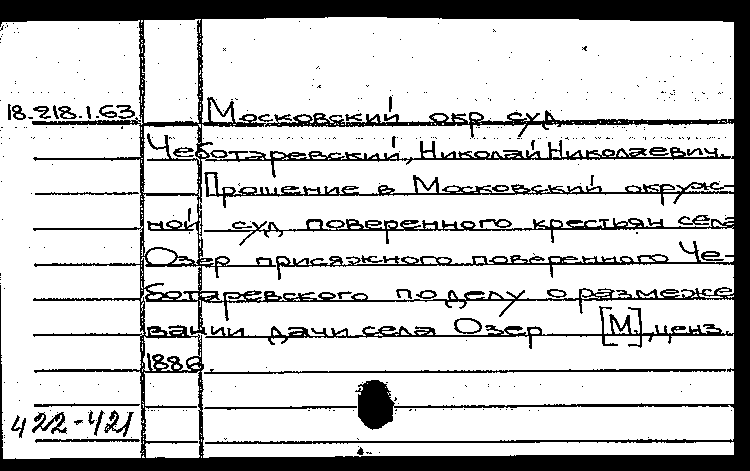 18.218.1.63 Московский окр суд
Чеботаревский, Николай Николаевич.
Прошение в Московский окруж-
ной суд поверенного крестьян села
Озер присяжного поверенного Че-
ботаревского по делу о размеже
вании дачи села Озер [М.], ценз.
1886.
422-421